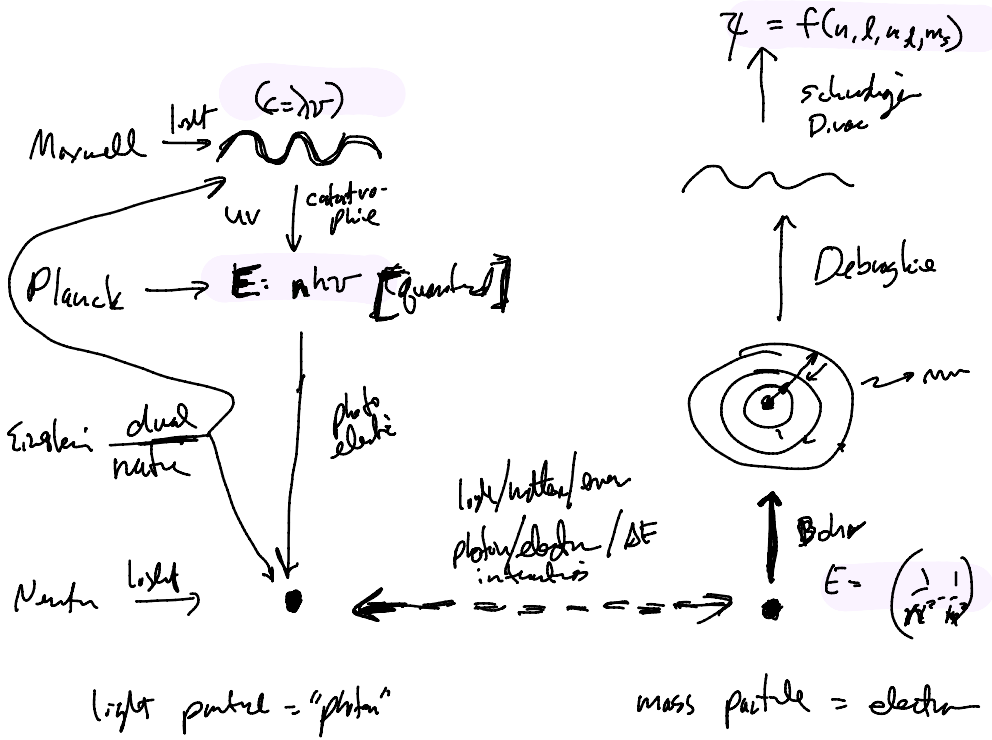 ψ = f(n, l, m_l, m_s)
Dirac
(c=λν)
Maxwell
light
uv
catastro-
phie
Planck
E = nhν [quantized]
Debroglie
Einstein
dual
nature
photo
electric
light/matter/ener
photon/electron/ΔE
interactions
Bohr
Newton
light
E =
light particle = "photon"
mass particle = electron